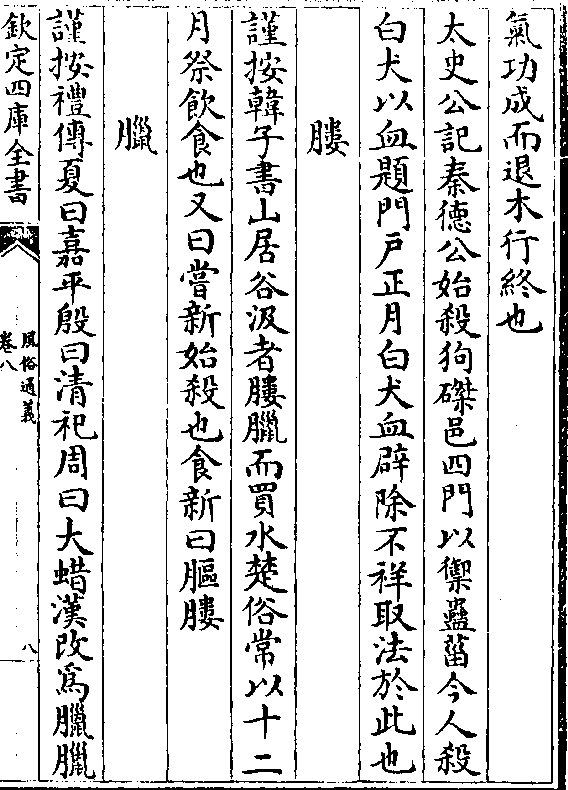 氣功成而退木行終也
太史公記秦徳公始殺狗磔邑四門以禦蠱菑今人殺
白犬以血題門戸正月白犬血辟除不祥取法於此也
膢
謹按韓子書山居谷汲者膢臘而買水楚俗常以十二
月祭飲食也又曰嘗新始殺也食新曰䝙膢
臘
謹按禮傳夏曰嘉平殷曰清祀周曰大蜡漢改爲臘臘
欽定四庫全書
風俗通義
卷八
八